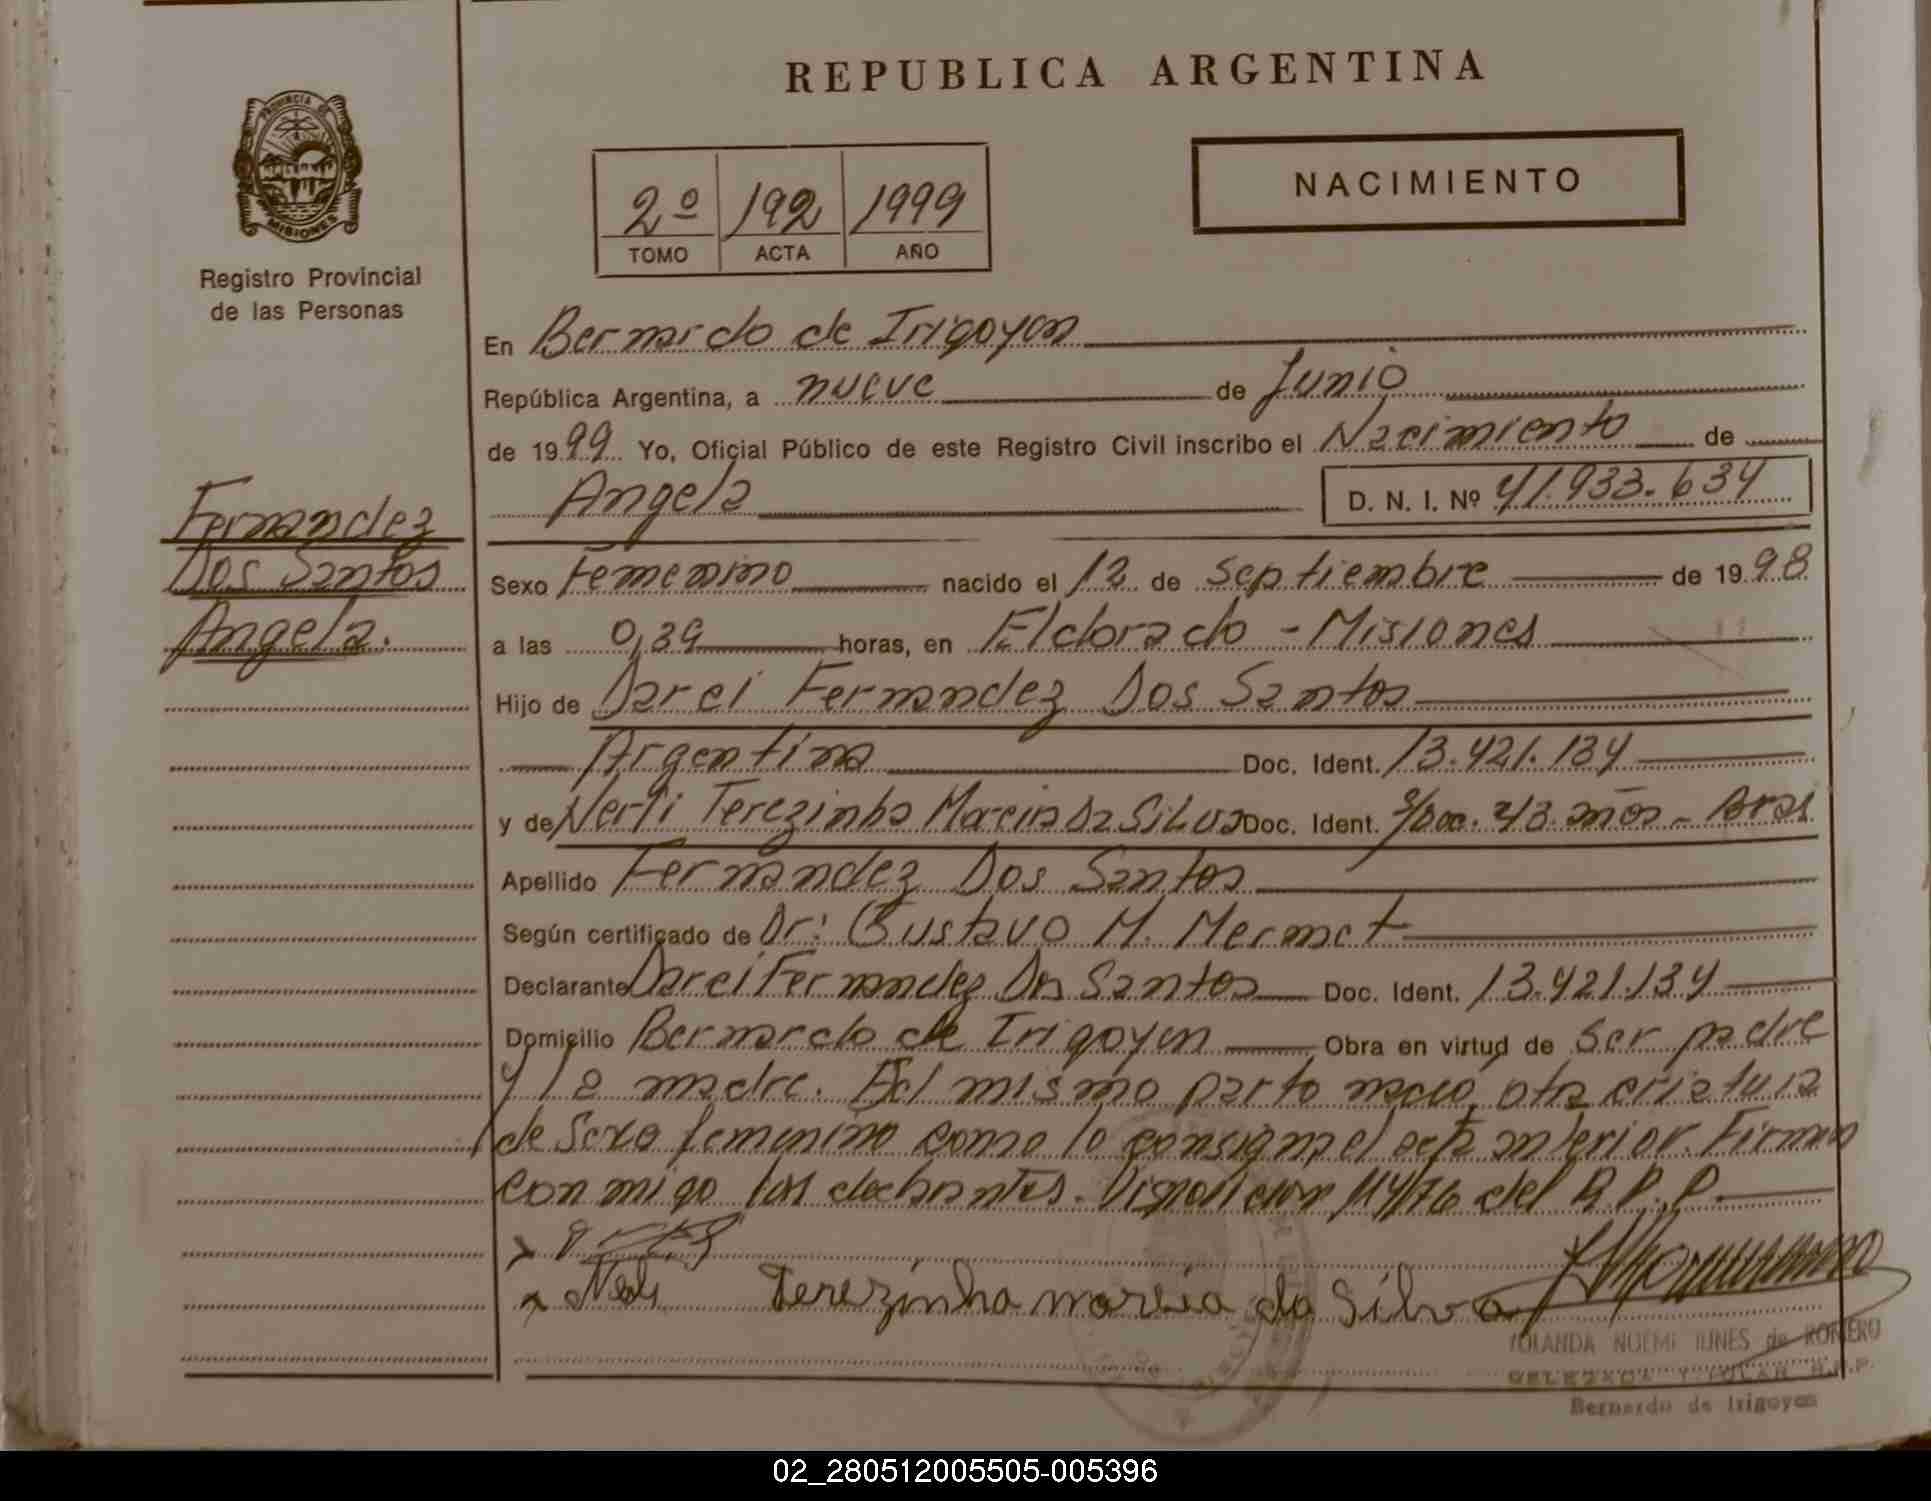 REPUBLICA ARGENTINA
PROVINCIA DE
MISIONES
Registro Provincial
de las Personas
2º 192 1999
TOMO ACTA AÑO
NACIMIENTO
En Bernardo de Irigoyen
República Argentina, a nueve de Junio
de 1999 Yo, Oficial Público de este Registro Civil inscribo el Nacimiento de
Angela D. N. I. Nº 41.933.634
Fernandez
Dos Santos
Angela.
Sexo Femenino nacido el 12 de Septiembre de 1998
a las 0,39 horas, en Eldorado - Misiones
Hijo de Darci Fernandez Dos Santos
Argentina Doc. Ident. 13.421.134
y de Nerli Terezinha Marcia Da Silva Doc. Ident. s/Doc. 43 años - Brasi
Apellido Fernandez Dos Santos
Según certificado de Dr: Gustavo M. Mermet
Declarante Darci Fernandez Dos Santos Doc. Ident. 13.421.134
Domicilio Bernardo de Irigoyen Obra en virtud de ser padre
y la madre. Del mismo parto nació otra criatura
de sexo femenino como lo consigna el acta anterior. Firman
conmigo los declarantes. Disposicion 114/76 del R.P.P.
Terezinha marcia da Silva
YOLANDA NOEMI IUNES de ROMERO
DELEGADA TITULAR R.P.P.
Bernardo de Irigoyen
02_280512005505-005396